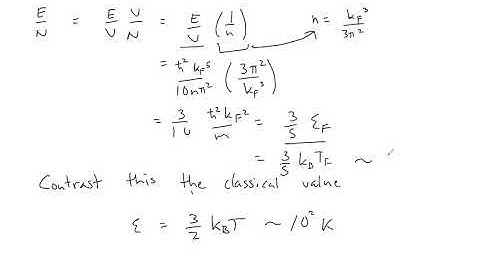 E/N = E/V V/N = E/V (1/n) n = k_F³/3π²
= ħ² k_F⁵/10mπ² (3π²/k_F³)
= 3/10 ħ² k_F²/m = 3/5 ℰ_F
= 3/5 k_B T_F ~
Contrast this the classical value
ℰ = 3/2 k_B T ~ 10² K